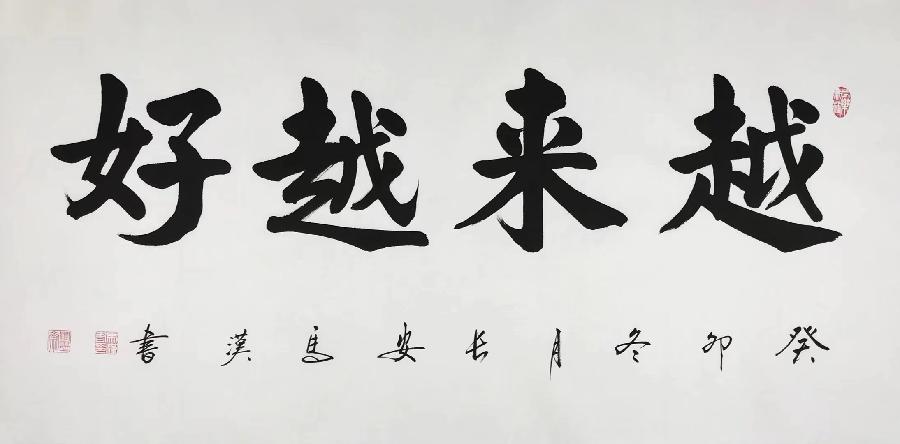 越来越好
癸卯冬月长安马汉書